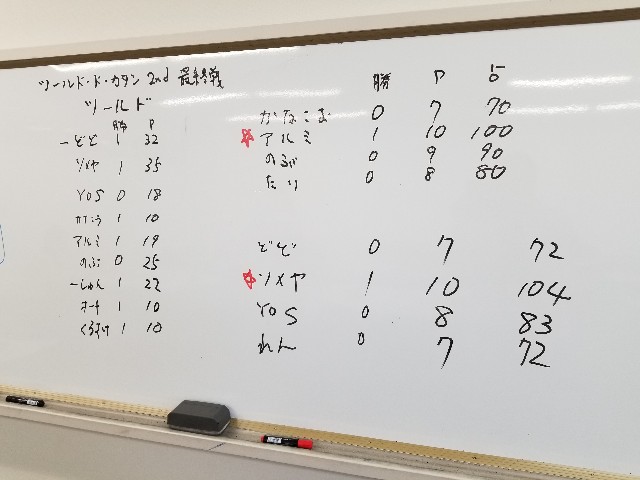 ツールド・ド・カタン 2nd 最終戦
ツールド
勝 P
一どど 1 32
ソメヤ 1 35
YOS 0 18
1 10
アルミ 1 19
のぶ 0 25
一しゅん 1 22
1 10
くろすけ 1 10
勝 P %
かなこま 0 7 70
☆アルミ 1 10 100
のぶ 0 9 90
たり 0 8 80
どど 0 7 72
☆ソメヤ 1 10 104
YOS 0 8 83
れん 0 7 72